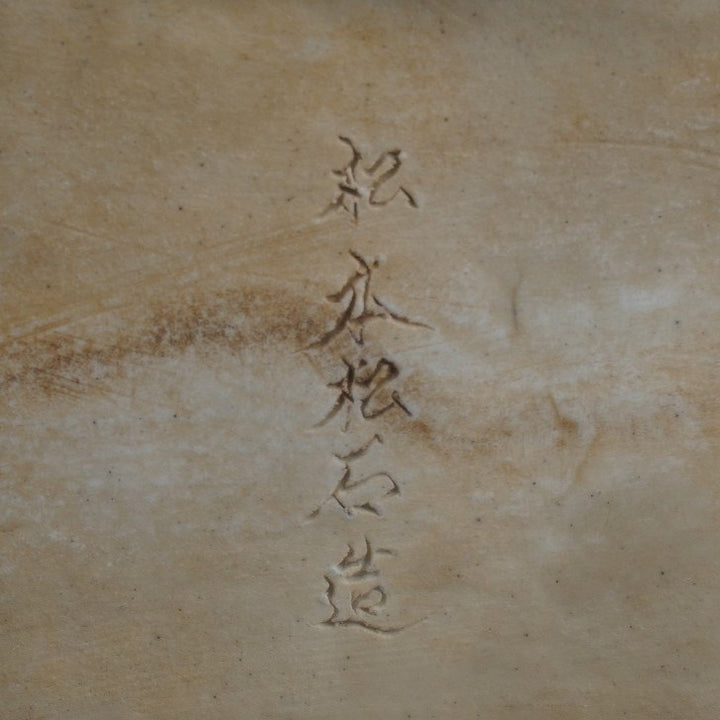 松永松石造